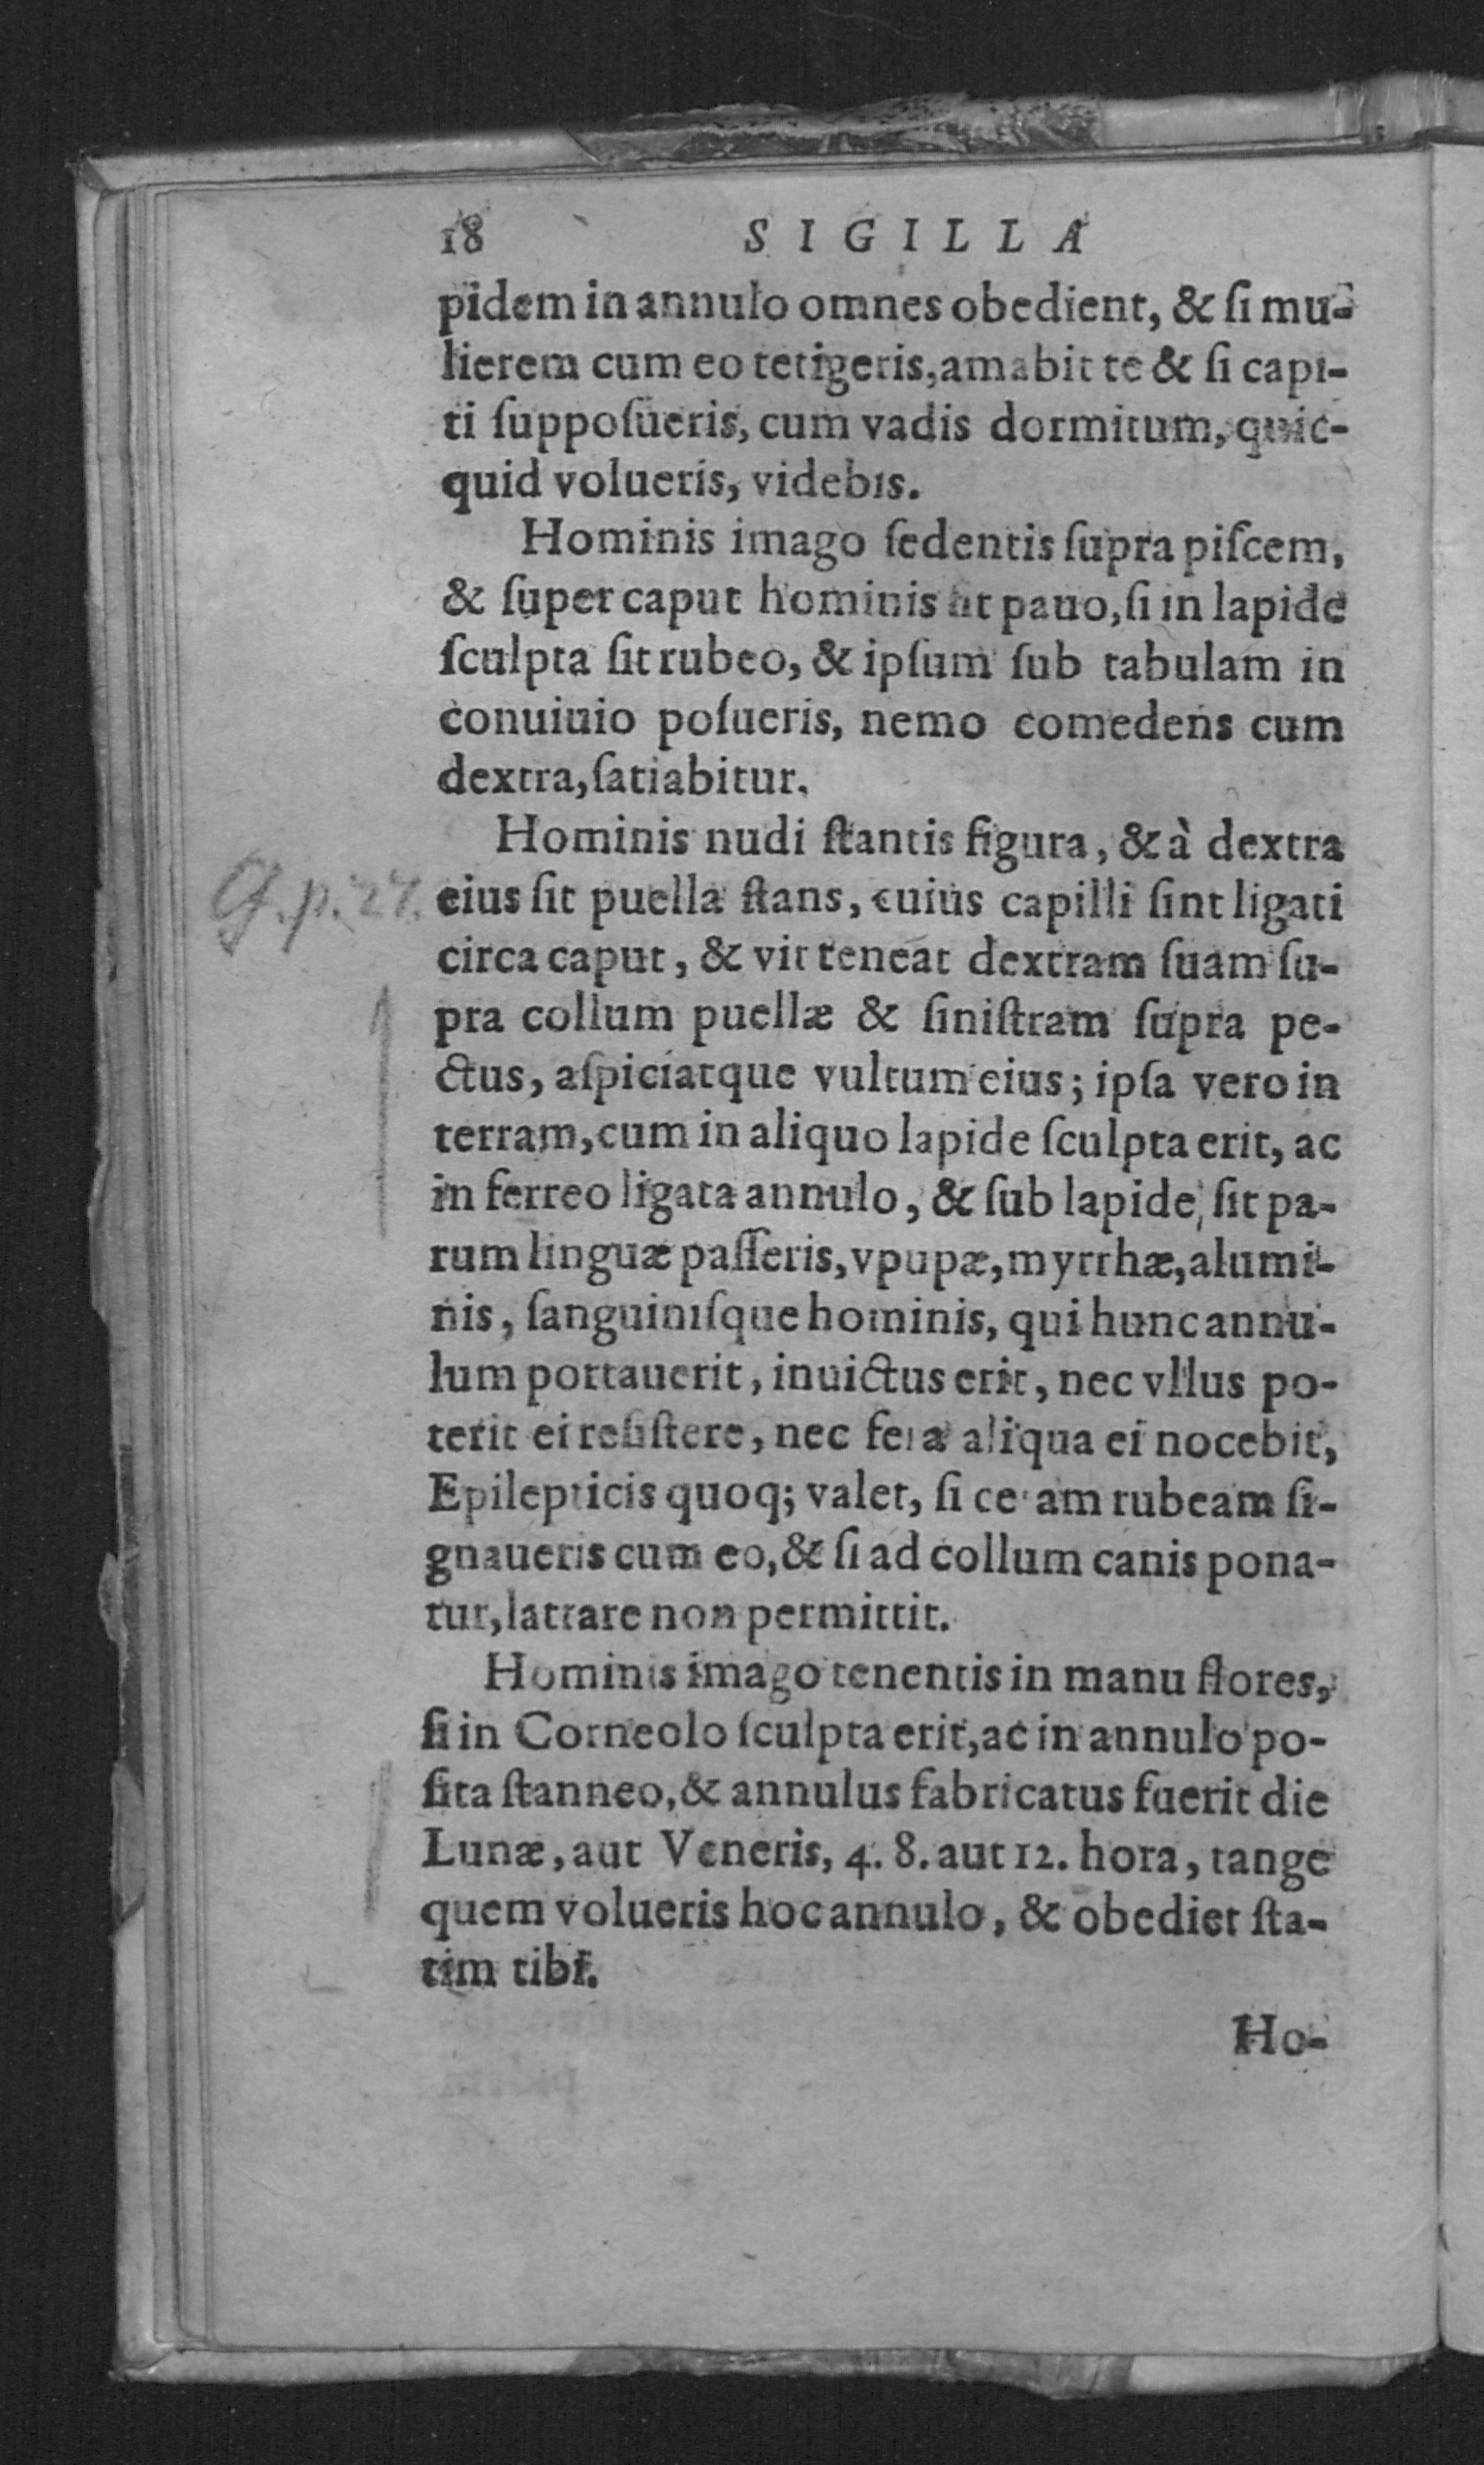 18 SIGILLA
pidem in annulo omnes obedient, & ſi mu-
lierem cum eo tetigeris, amabit te & ſi capi-
ti ſuppoſueris, cum vadis dormitum, quic-
quid volueris, videbis.
Hominis imago ſedentis ſupra piſcem,
& ſuper caput hominis ſit pauo, ſi in lapide
ſculpta ſit rubeo, & ipſum ſub tabulam in
conuiuio poſueris, nemo comedens cum
dextra, ſatiabitur.
Hominis nudi ſtantis figura, & à dextra
G. p. 27. eius ſit puella ſtans, cuius capilli ſint ligati
circa caput, & vir teneat dextram ſuam ſu-
pra collum puellæ & ſiniſtram ſupra pe-
ctus, aſpiciatque vultum eius; ipſa vero in
terram, cum in aliquo lapide ſculpta erit, ac
in ferreo ligata annulo, & ſub lapide ſit pa-
rum linguæ paſſeris, vpupæ, myrrhæ, alumi-
nis, ſanguiniſque hominis, qui hunc annu-
lum portauerit, inuictus erit, nec vllus po-
terit ei reſiſtere, nec fera aliqua ei nocebit,
Epilepticis quoq; valet, ſi ceram rubeam ſi-
gnaueris cum eo, & ſi ad collum canis pona-
tur, latrare non permittit.
Hominis imago tenentis in manu flores,
ſi in Corneolo ſculpta erit, ac in annulo po-
ſita ſtanneo, & annulus fabricatus fuerit die
Lunæ, aut Veneris, 4. 8. aut 12. hora, tange
quem volueris hoc annulo, & obediet ſta-
tim tibi.
Ho-